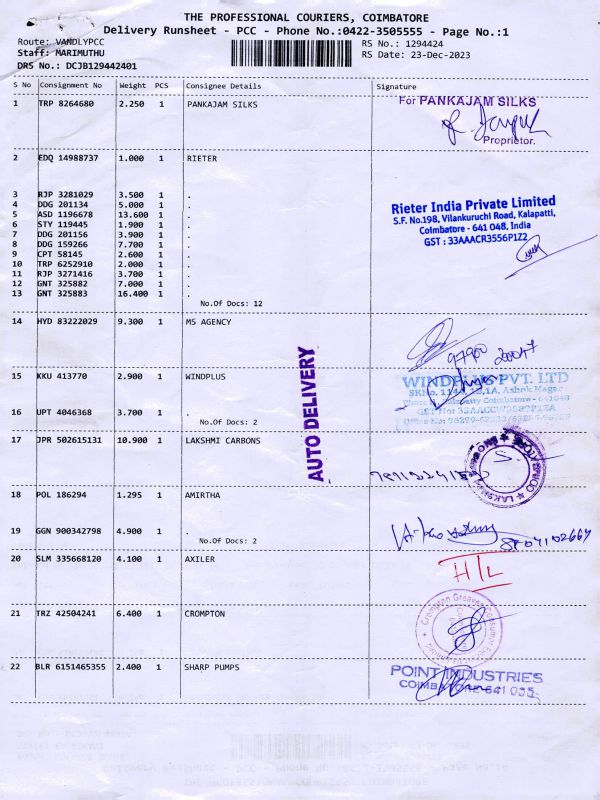 THE PROFESSIONAL COURIERS, COIMBATORE
Delivery Runsheet - PCC - Phone No.:0422-3505555 - Page No.:1
Route: VANDLYPCC
RS No.: 1294424
Staff: MARIMUTHU
RS Date: 23-Dec-2023
DRS No.: DCJB129442401
S No Consignment No Weight PCS Consignee Details Signature
1 TRP 8264680 2.250 1 PANKAJAM SILKS
For PANKAJAM SILKS
Proprietor.
2 EDQ 14988737 1.000 1 RIETER
3 RJP 3281029 3.500 1 .
4 DDG 201134 5.000 1 .
5 ASD 1196678 13.600 1 .
6 STY 119445 1.900 1 .
7 DDG 201156 3.900 1 .
8 DDG 159266 7.700 1 .
9 CPT 58145 2.600 1 .
10 TRP 6252910 2.000 1 .
11 RJP 3271416 3.700 1 .
12 GNT 325882 7.000 1 .
13 GNT 325883 16.400 1 .
No.Of Docs: 12
Rieter India Private Limited
S.F. No.198, Vilankuruchi Road, Kalapatti,
Coimbatore - 641 048, India
GST : 33AAACR3556P1Z2
14 HYD 83222029 9.300 1 MS AGENCY
AUTO DELIVERY
15 KKU 413770 2.900 1 WINDPLUS
WINDPLUS PVT. LTD
16 UPT 4046368 3.700 1 .
No.Of Docs: 2
17 JPR 502615131 10.900 1 LAKSHMI CARBONS
18 POL 186294 1.295 1 AMIRTHA
19 GGN 900342798 4.900 1 .
No.Of Docs: 2
20 SLM 335668120 4.100 1 AXILER
H/L
21 TRZ 42504241 6.400 1 CROMPTON
22 BLR 6151465355 2.400 1 SHARP PUMPS
POINT INDUSTRIES